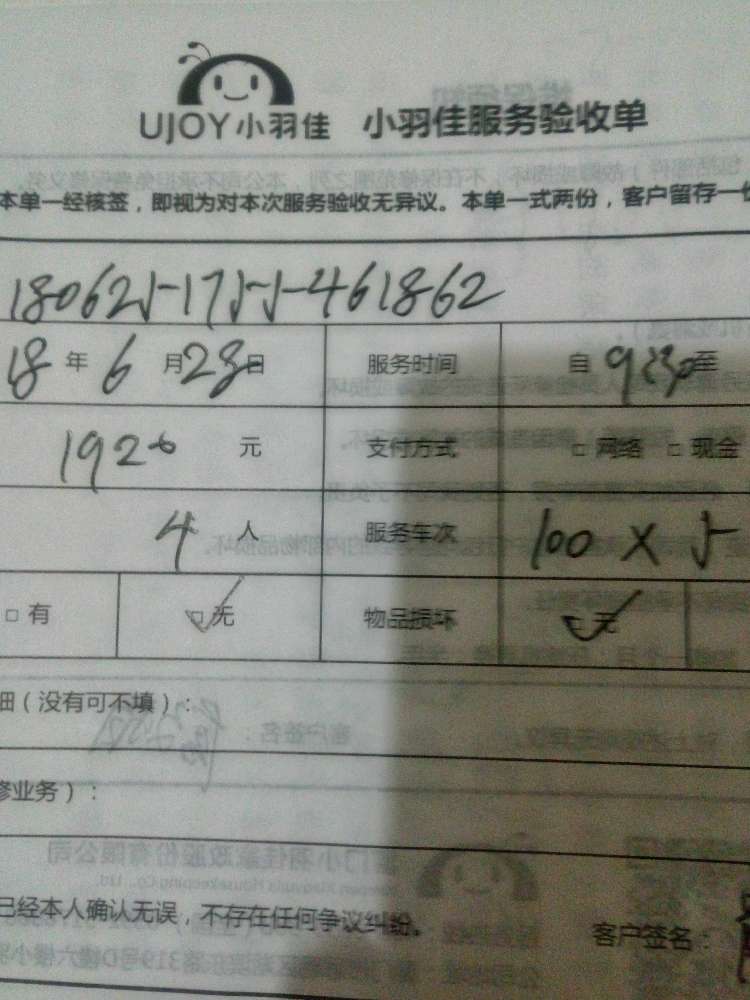 UJOY小羽佳 小羽佳服务验收单
本单一经核签，即视为对本次服务验收无异议。本单一式两份，客户留存一份
180625-1755-461862
18 年 6 月 28 日 服务时间 自 9:30 至
1920 元 支付方式 □ 网络 □ 现金
4 人 服务车次 100 X 5
□ 有 □ 无 物品损坏 □ 无
细（没有可不填）：
修业务）：
已经本人确认无误，不存在任何争议纠纷。
客户签名：